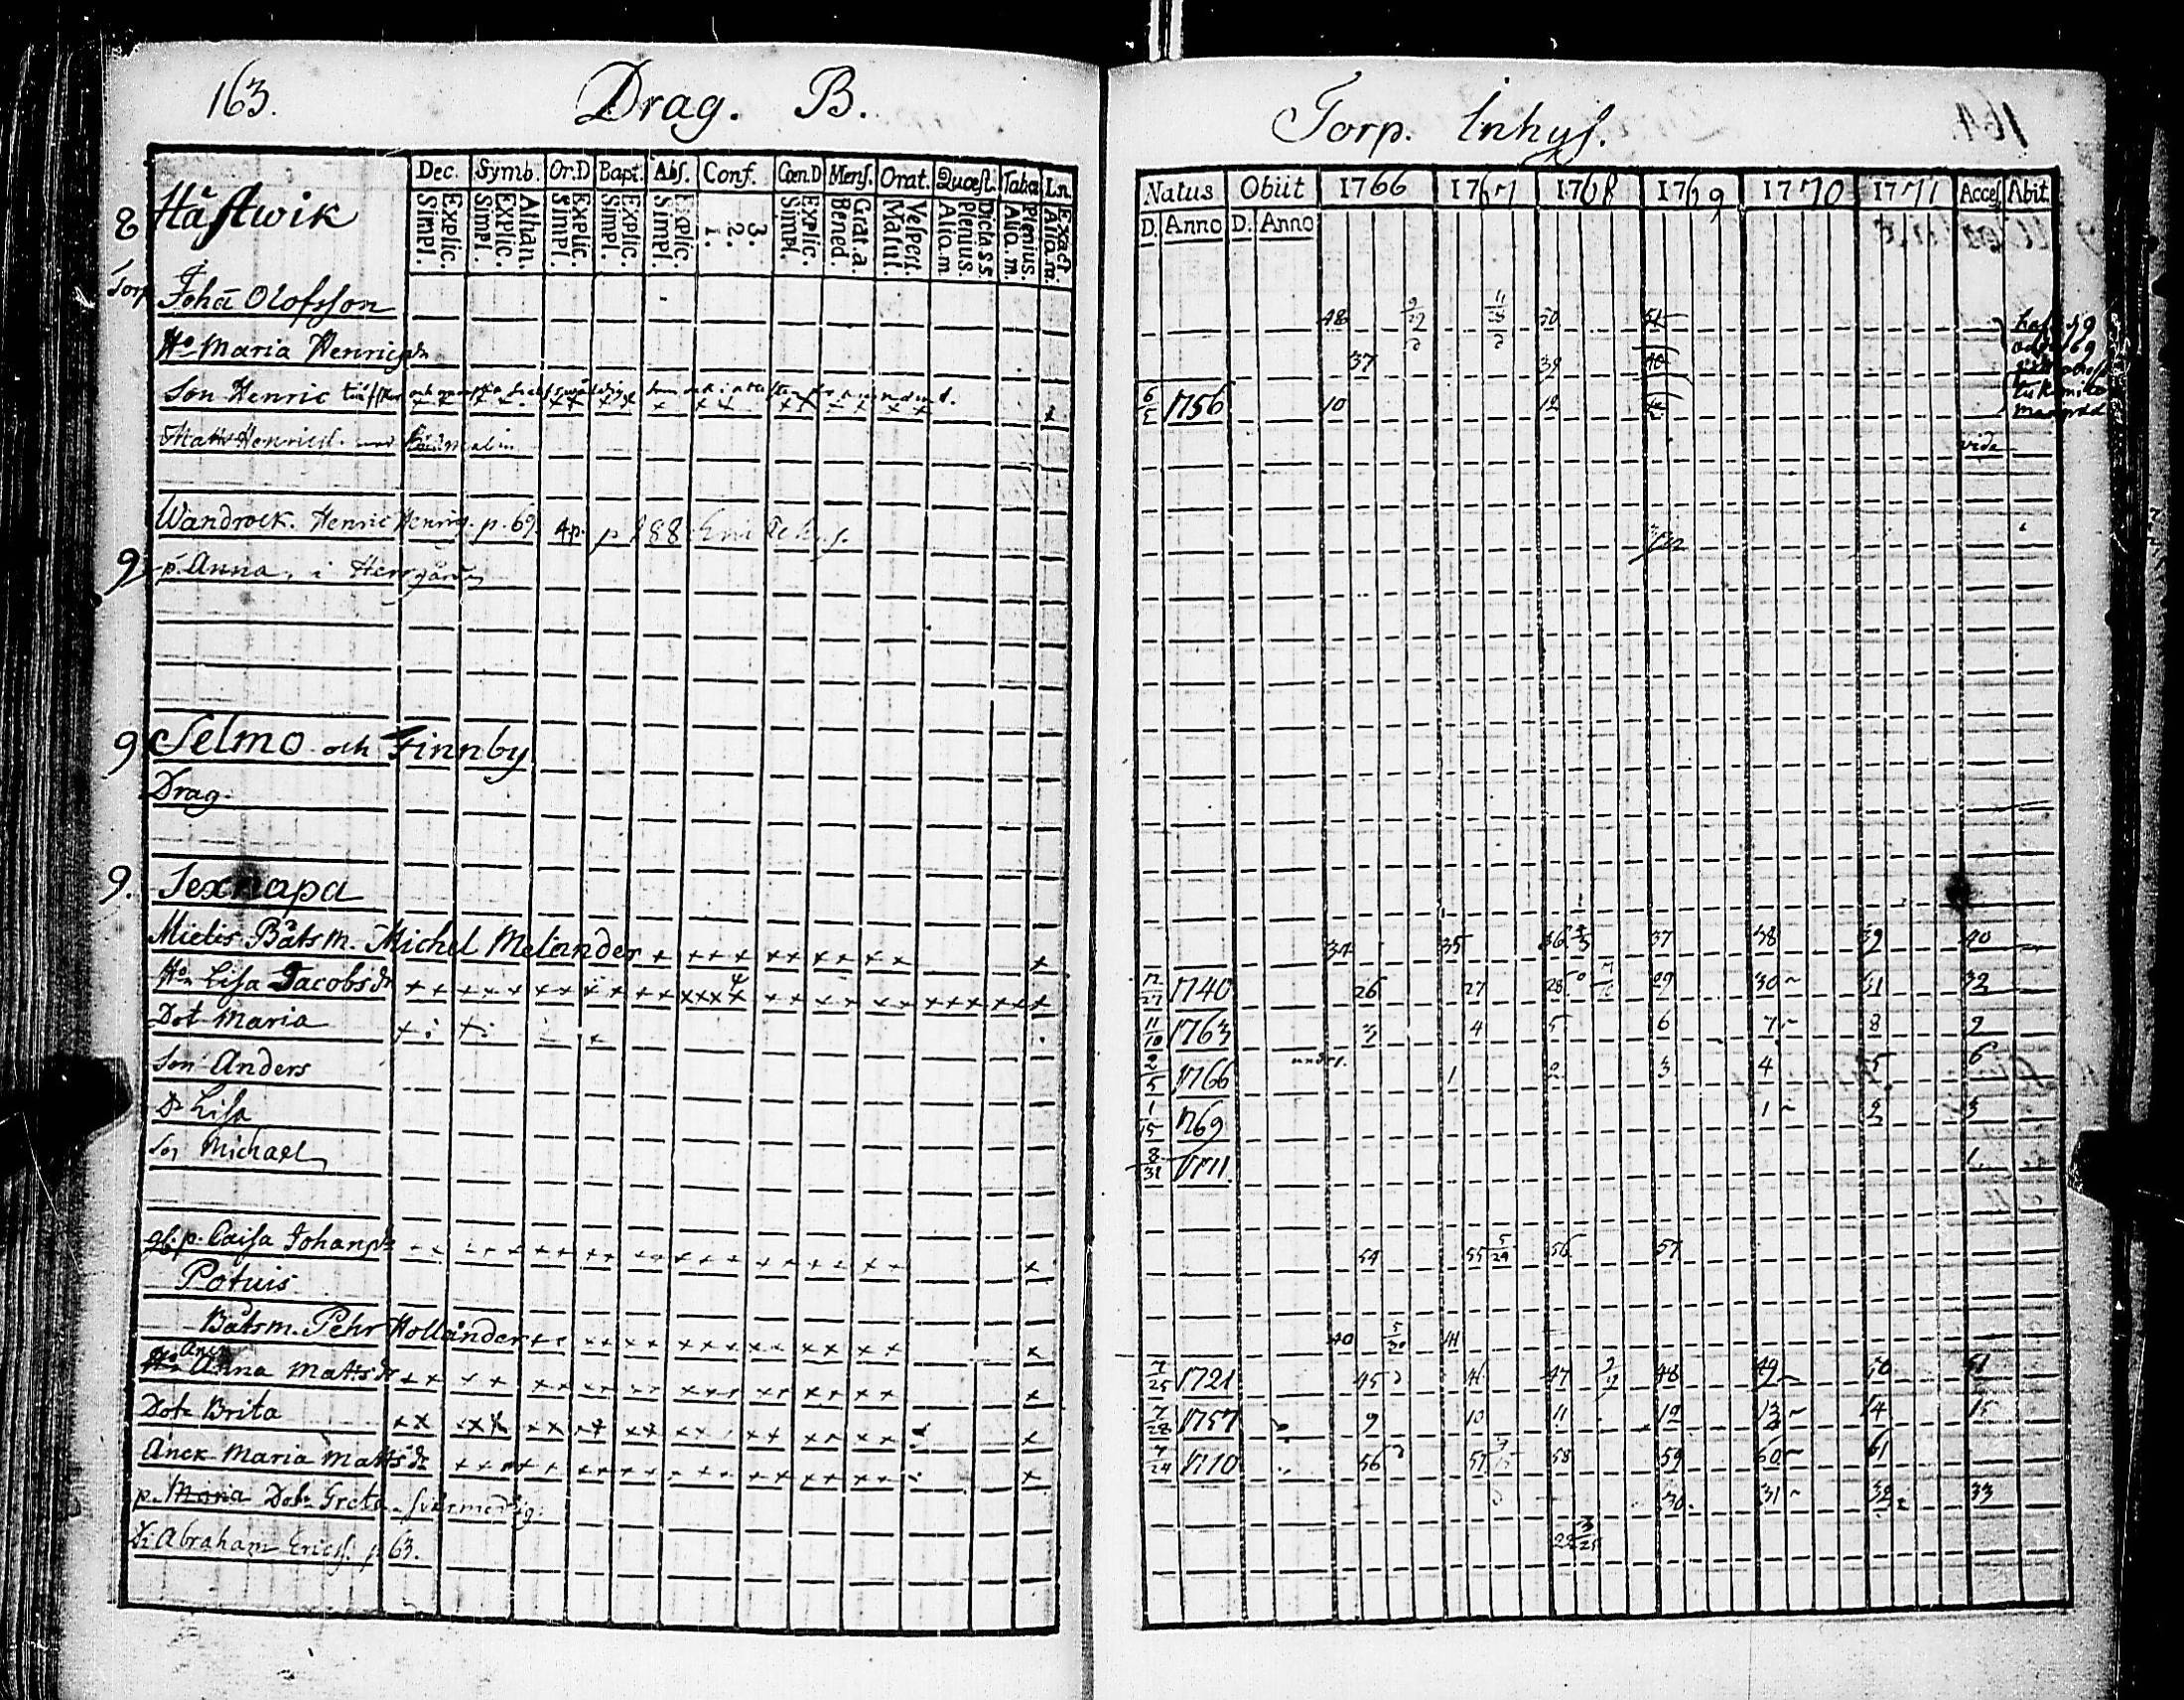 163. Drag. B.
Dec. Symb. Or.D Bapt. Abs. Conf. Cœn.D Mens. Orat. Quæst. Tabæ Ln.
Simpl. Explic. Simpl. Explic. Athan. Simpl. Explic. Simpl. Explic. Simpl. Explic. 1. 2. 3. Simpl. Explic. Bened. Grat.a. Matut. Vespert. Alia.m Plenius. Dicta.SS. Alia.m. Plenius. Alia.m. Exact
8 Håstwik
Torp Johā Olofsson
Ho Maria Henricsdr
Son Henric
Matts Henricss. Malin
Wandrock. Henric Henrics. p. 69. 4p. p 188
9 p. Anna, i Herrgården
9 Selmo och Finnby
Drag.
9. Sexnapa
Mielis Båtsm. Michel Melander
Hn Lisa Jacobsdr
Dot Maria
Son Anders
Dr Lisa
Son Michael
gl. p. Caisa Johansdr
Potuis
Båtsm. Pehr Hollander
Anck
Ho Anna Mattsdr
Dotr Brita
Anck Maria Mattsdr
p. Maria Dotr Greta
Dr Abraham Ericss. p 63.
Torp. Inhys. 164
Natus Obiit 1766 1767 1768 1769 1770 1771 Access Abit.
D. Anno D. Anno
48 50 51
37 39 40
6 1756 10 12
vide
34 35 36 37 38 39 40
12/27 1740 26 27 28 29 30 31 32
11/10 1763 3 4 5 6 7 8 9
2/5 1766 1 2 3 4 5 6
1/15 1769 1 2 3
8/31 1771 1
54 55 5/24 56 57
40 5/30 41
7/25 1721 45 46 47 48 49 50 51
7/28 1757 9 10 11 12 13 14 15
7/24 1710 56 57 58 59 60 61
30 31 32 33
22 3/25